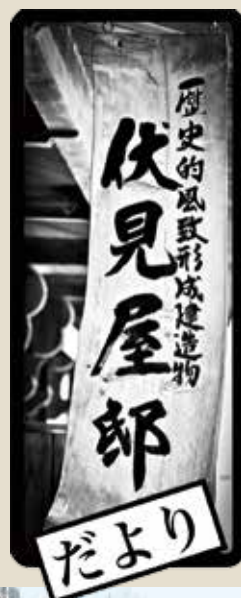 歴史的風致形成建造物
伏見屋邸
だより